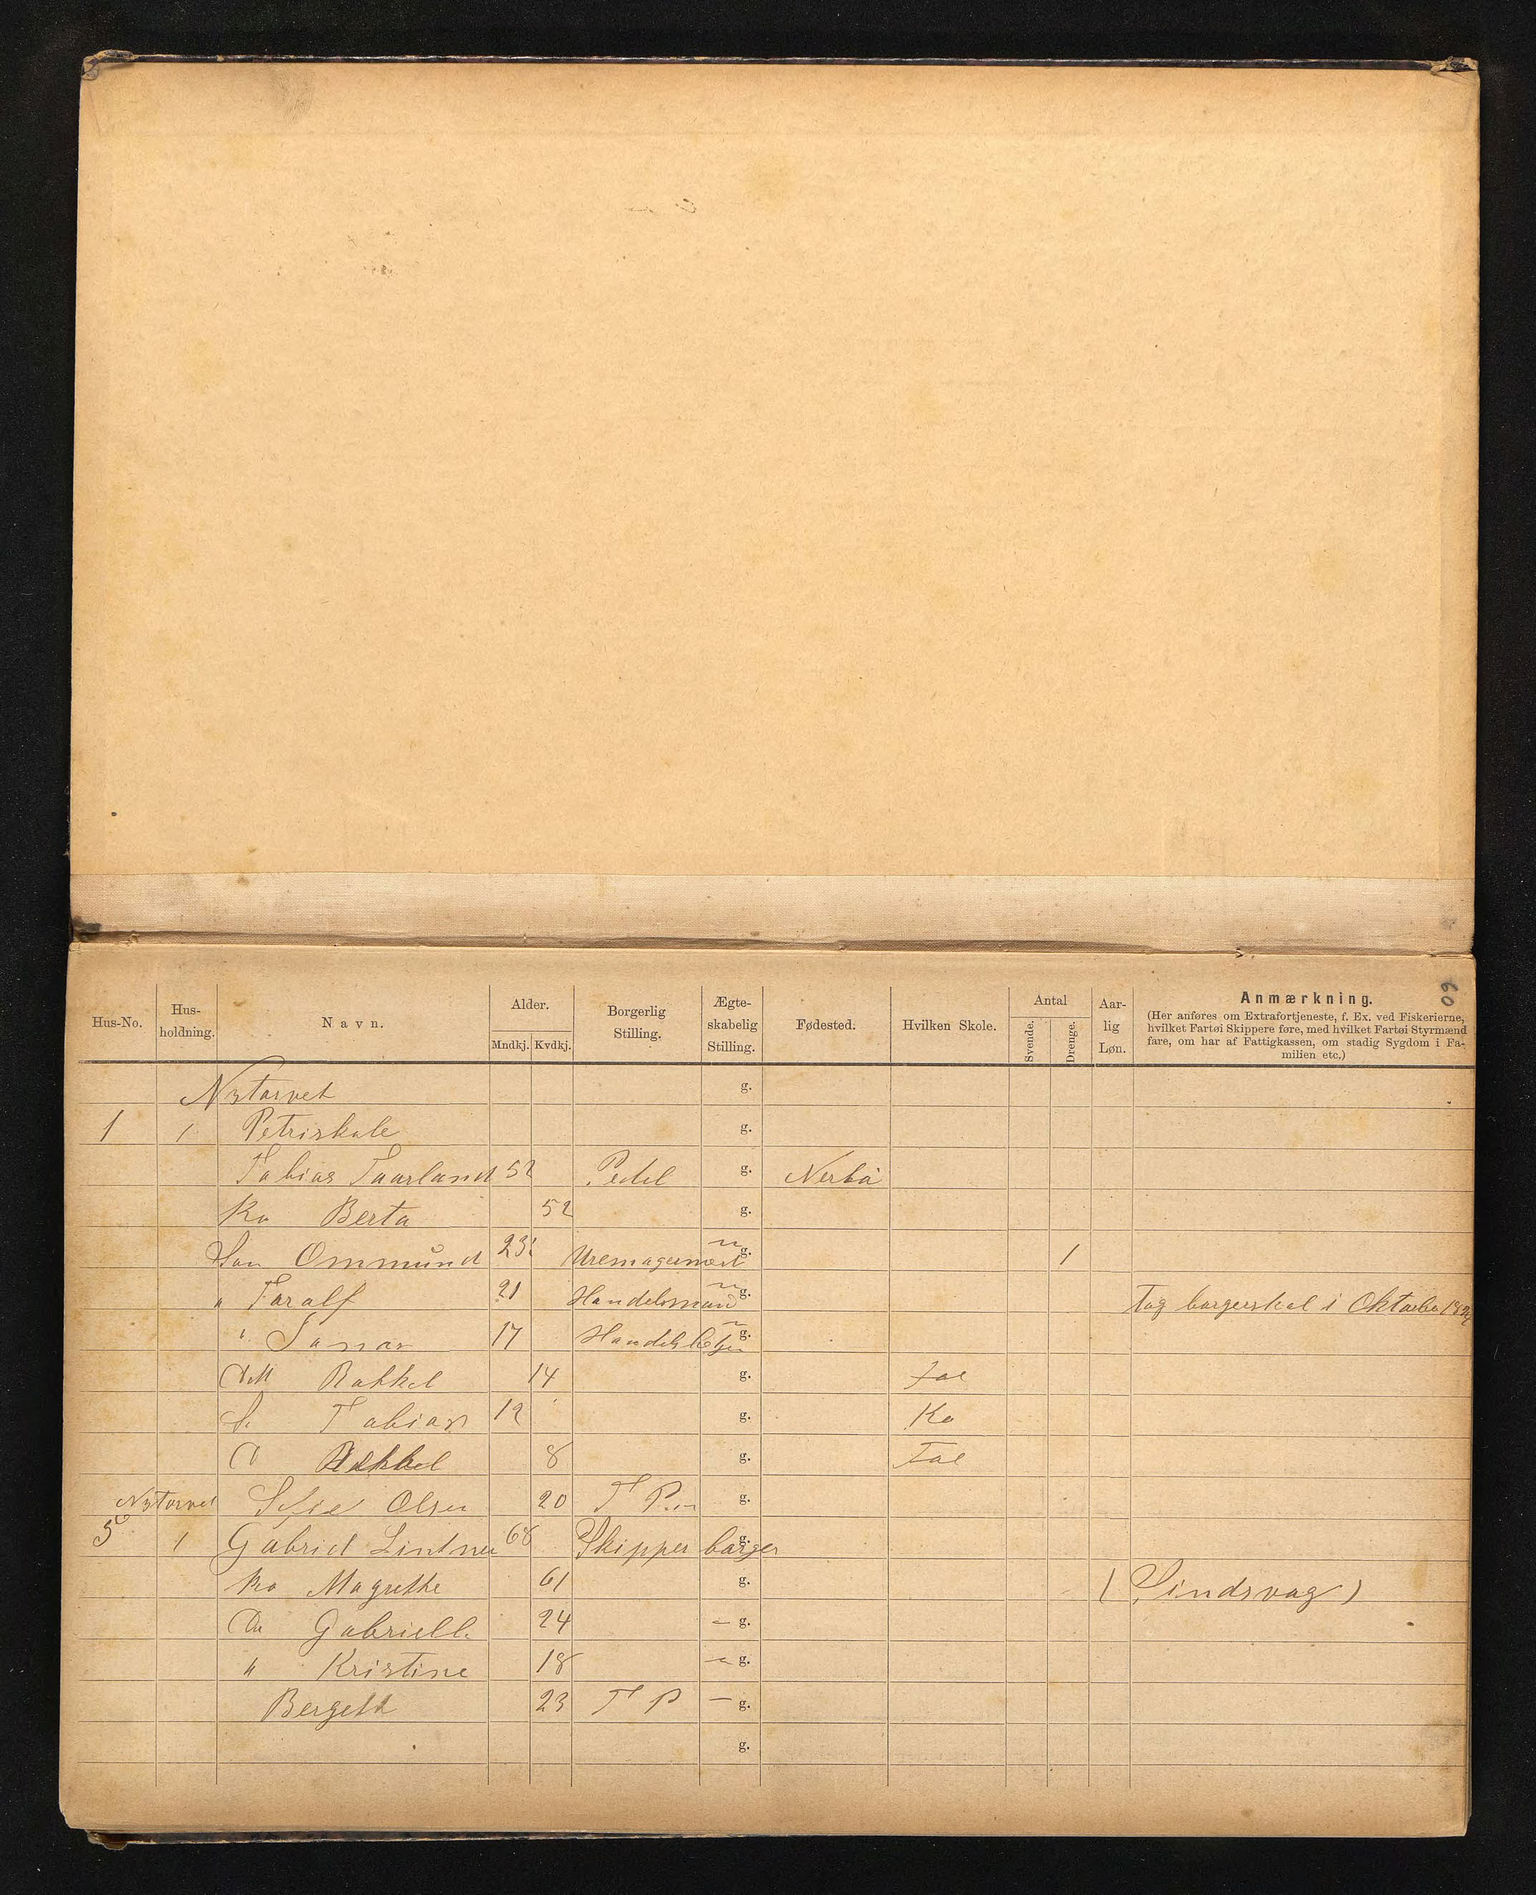 60
Hus-No. Hus-holdning. Navn. Alder. Mndkj. Kvdkj. Borgerlig Stilling. Ægte-skabelig Stilling. Fødested. Hvilken Skole. Antal Svende. Drenge. Aar-lig Løn. Anmærkning.
(Her anføres om Extrafortjeneste, f. Ex. ved Fiskerierne,
hvilket Fartøi Skippere føre, med hvilket Fartøi Styrmænd
fare, om har af Fattigkassen, om stadig Sygdom i Fa-
milien etc.)
Nytorvet g.
1 1 Petriskole g.
Tobias Taarland 52 Pedel g. Nerbø
Ko Berta 52 g.
Søn Ommund 23 Uremagersvend g. 1
" Toralf 21 Handelsmand g. Tog borgerskab i Oktober
" 17 g.
Dat Rakkel 14 g. Fol
S Tobias 12 g. Ko
D 8 g. Fol
Nytorvet Olsen 20 T P g.
5 1 Gabriel Lintner 68 Skipper borger g.
Ko Magrethe 61 g. ( Sindsvag )
Da Gabrielle 24 – g.
" Kristine 18 – g.
Bergett 23 T P – g.
g.